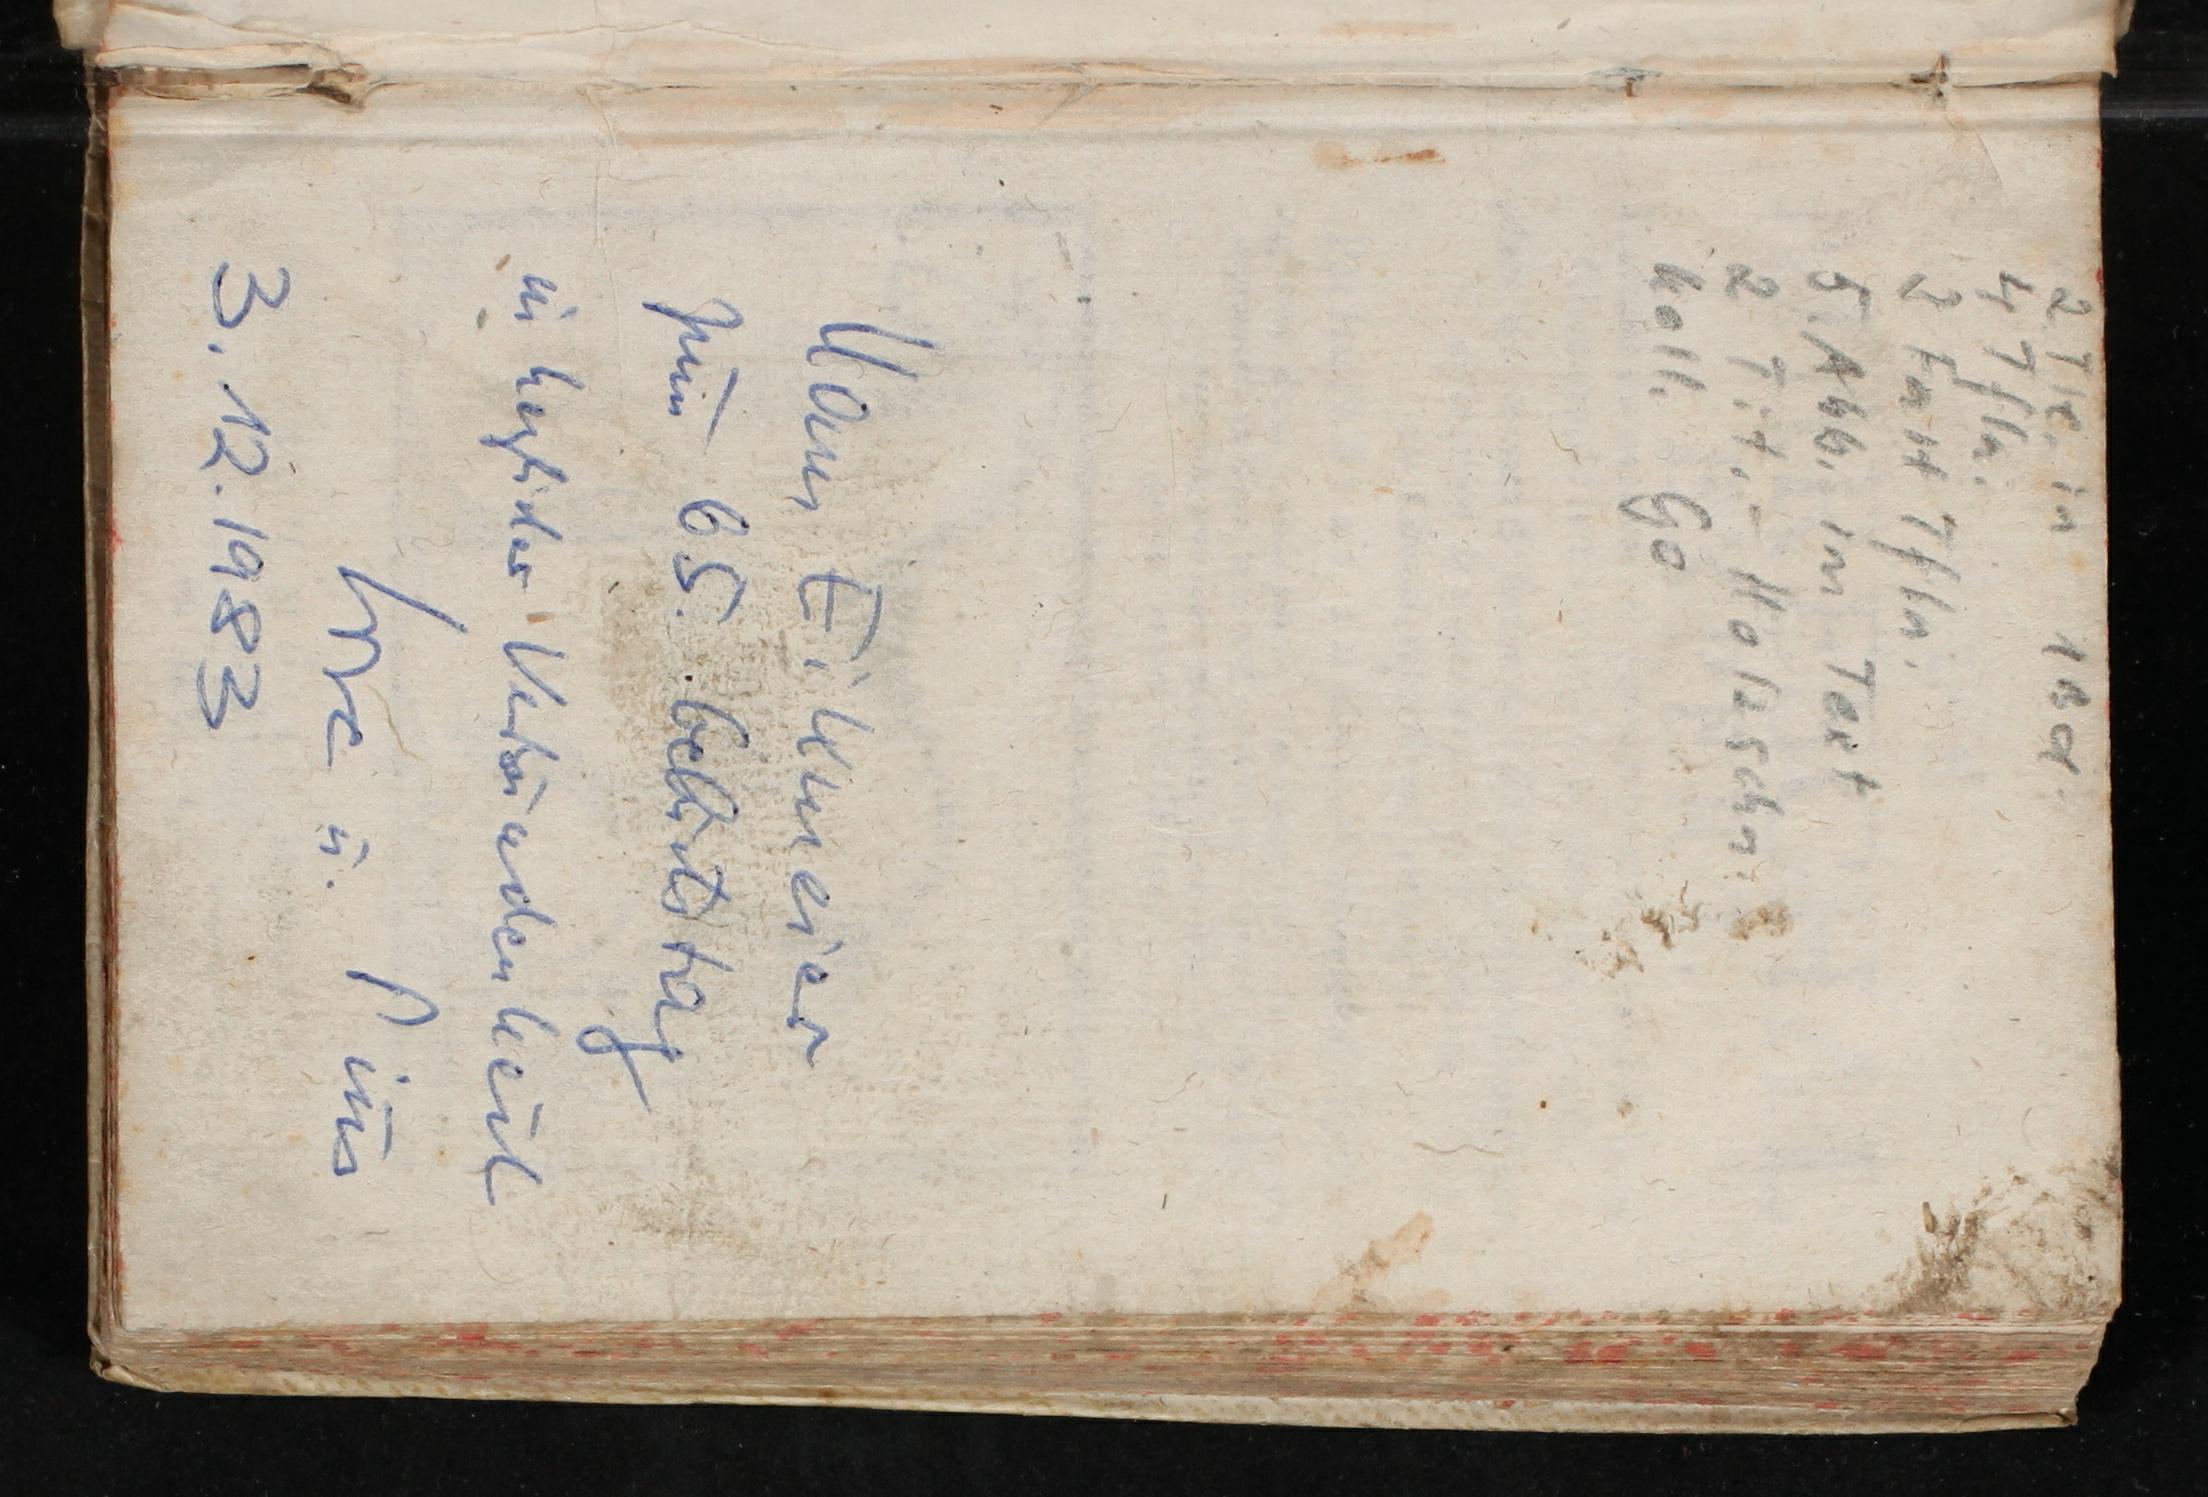 2 Tle. in 1 Bd.
4 Tfln.
3 Tfln.
5 Abb. im Text
2 Tit. - Holzschn.
koll. Go
Hans Eikmeier
zum 65. Gebutstag
in herzlicher Verbundenheit
u.
3.12.1983